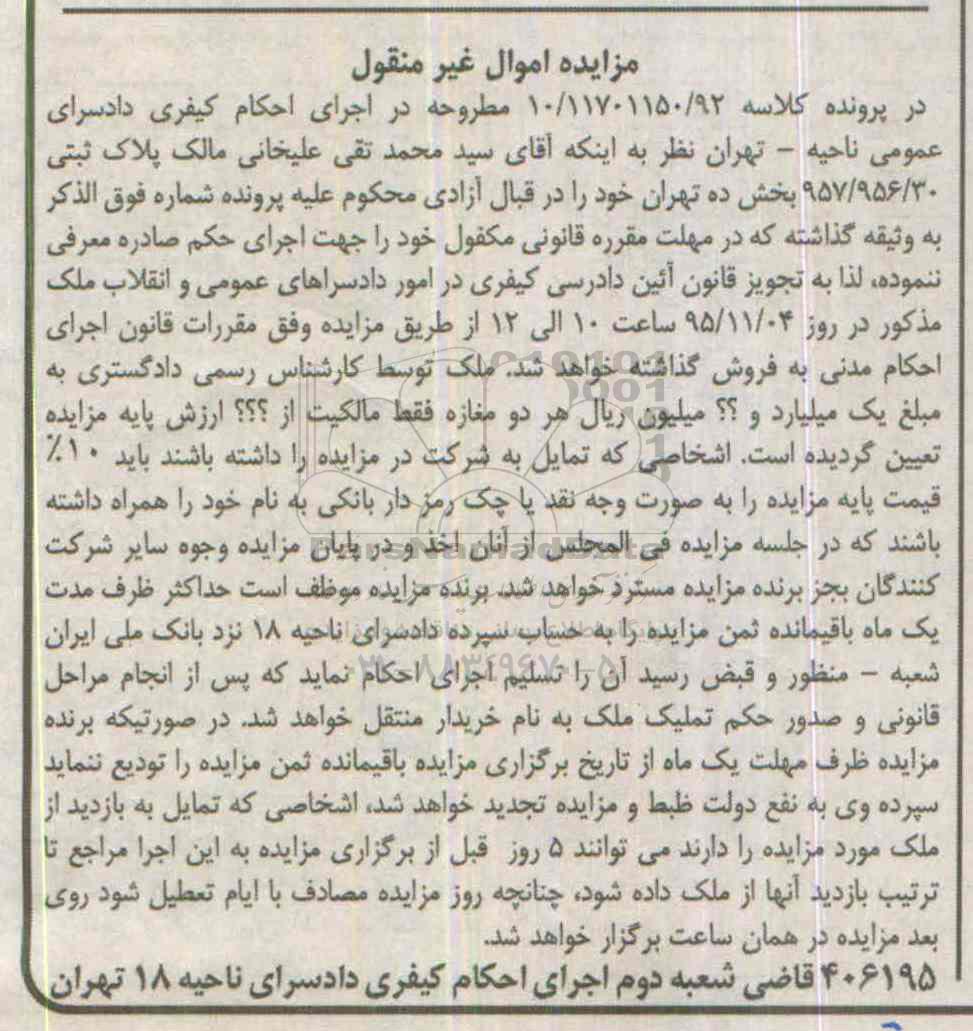 مزایده اموال غیر منقول
در پرونده کلاسه ۱۰/۱۱۷۰۱۱۵۰/۹۲ مطروحه در اجرای احکام کیفری دادسرای
عمومی ناحیه - تهران نظر به اینکه آقای سید محمد تقی علیخانی مالک پلاک ثبتی
۹۵۷/۹۵۶/۳۰ بخش ده تهران خود را در قبال آزادی محکوم علیه پرونده شماره فوق الذکر
به وثیقه گذاشته که در مهلت مقرره قانونی مکفول خود را جهت اجرای حکم صادره معرفی
ننموده، لذا به تجویز قانون آئین دادرسی کیفری در امور دادسراهای عمومی و انقلاب ملک
مذکور در روز ۹۵/۱۱/۰۴ ساعت ۱۰ الی ۱۲ از طریق مزایده وفق مقررات قانون اجرای
احکام مدنی به فروش گذاشته خواهد شد. ملک توسط کارشناس رسمی دادگستری به
مبلغ یک میلیارد و ؟؟ میلیون ریال هر دو مغازه فقط مالکیت از ؟؟؟ ارزش پایه مزایده
تعیین گردیده است. اشخاصی که تمایل به شرکت در مزایده را داشته باشند باید ۱۰٪
قیمت پایه مزایده را به صورت وجه نقد یا چک رمز دار بانکی به نام خود را همراه داشته
باشند که در جلسه مزایده فی المجلس از آنان اخذ و در پایان مزایده وجوه سایر شرکت
کنندگان بجز برنده مزایده مسترد خواهد شد. برنده مزایده موظف است حداکثر ظرف مدت
یک ماه باقیمانده ثمن مزایده را به حساب سپرده دادسرای ناحیه ۱۸ نزد بانک ملی ایران
شعبه - منظور و قبض رسید آن را تسلیم اجرای احکام نماید که پس از انجام مراحل
قانونی و صدور حکم تملیک ملک به نام خریدار منتقل خواهد شد. در صورتیکه برنده
مزایده ظرف مهلت یک ماه از تاریخ برگزاری مزایده باقیمانده ثمن مزایده را تودیع ننماید
سپرده وی به نفع دولت ظبط و مزایده تجدید خواهد شد، اشخاصی که تمایل به بازدید از
ملک مورد مزایده را دارند می توانند ۵ روز قبل از برگزاری مزایده به این اجرا مراجع تا
ترتیب بازدید آنها از ملک داده شود، چنانچه روز مزایده مصادف با ایام تعطیل شود روی
بعد مزایده در همان ساعت برگزار خواهد شد.
۴۰۶۱۹۵ قاضی شعبه دوم اجرای احکام کیفری دادسرای ناحیه ۱۸ تهران